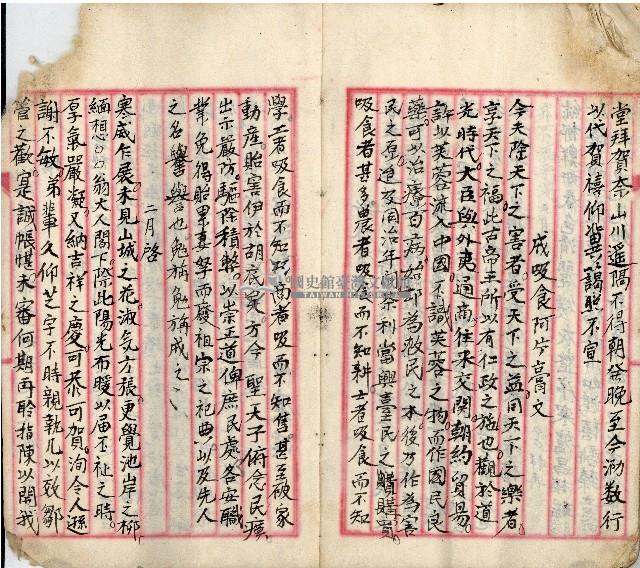 堂拜賀奈山川遥隔不得朝發晚至今泐数行
以代賀禧仰冀以謁照不宣
戒吸食阿片膏文
今夫除天下之害者受天下之益同天下之樂者
享天下之福此古帝王所以有仁政之施也觀於道
光時代大臣與外夷通商往来交関朝約貿易
許以芙蓉流入中國不識芙蓉之物而作國民良
藥可以治療百病始即為救民之本後乃作為害
民之原迨及同治年間茶利當興臺民之購買
吸食者甚多農者吸食而不知耕士者吸食而不知
學工者吸食而不知 商者吸而不知售甚至破家
動產貽害伊於胡底矣方今 聖天子俯念民瘼
出示嚴防驅除積弊以崇王道俾庶民處各安職
業免得貽累妻孥而廢祖宗之祀典以及先人
之名譽也勉旃勉旃戒之
二月啓
寒威乍展未見山城之花淑気方張更覺池岸之柳
緬想〇〇翁大人閣下際此陽光布暖以届不祉之時
厚氣嚴凝又納吉祥之慶可恭可賀洵令人遜
謝不敏弟輩久仰芝宇不時親執几以效鄒
管之歡寔誠悵惟未審何期再聆指陳以開我
國史館臺灣文獻館
TAIWAN HISTORICA